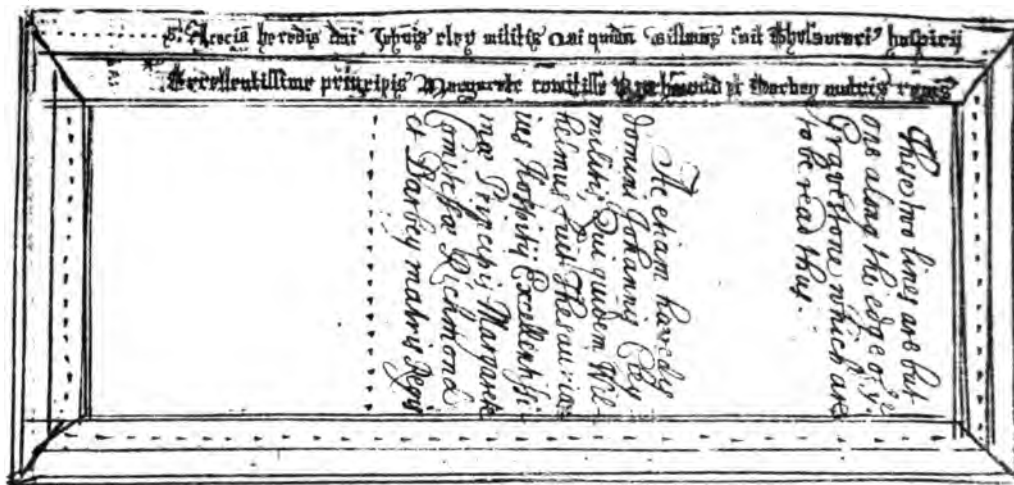 heredis dni Johnis cley militis Qui quidm willmus fuit Thesaurari9 hospicii
Excellentissime principis Margarete comitisse Rychmond et Darbey matris regis
These two lines are but
one along the edge of yͤ
Gravestone which are
to be read thus.
Ac etiam hæredis
domini Johannis Cley
militis, Qui quidem Wil-
helmus fuit Thesauria-
ius Hospitij Excellentissi-
mæ Principis Margaretæ
Comitissæ Richmond
et Darbey matris Regis